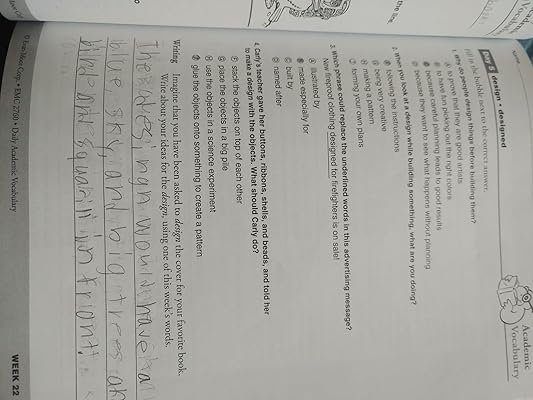 the line.
Academic
Vocabulary
DAY 5 design • designed
Fill in the bubble next to the correct answer.
1. Why do people design things before building them?
A to prove that they are good artists
B to have fun picking out the right colors
because careful planning leads to good results
D because they want to see what happens without planning
2. When you look at a design while building something, what are you doing?
following the instructions
G being very creative
H making a pattern
J forming your own plans
3. Which phrase could replace the underlined words in this advertising message?
New fireproof clothing designed for firefighters is on sale!
A illustrated by
made especially for
C built by
D named after
4. Carly's teacher gave her buttons, ribbons, shells, and beads, and told her
to make a design with the objects. What should Carly do?
F stack the objects on top of each other
G place the objects in a big pile
H use the objects in a science experiment
glue the objects onto something to create a pattern
Writing Imagine that you have been asked to design the cover for your favorite book.
Write about your ideas for the design, using one of this week's words.
The desingn would have a
blue sky, and big trees an
bird and squarill in front!
© Evan-Moor Corp. • EMC 2760 • Daily Academic Vocabulary
WEEK 22